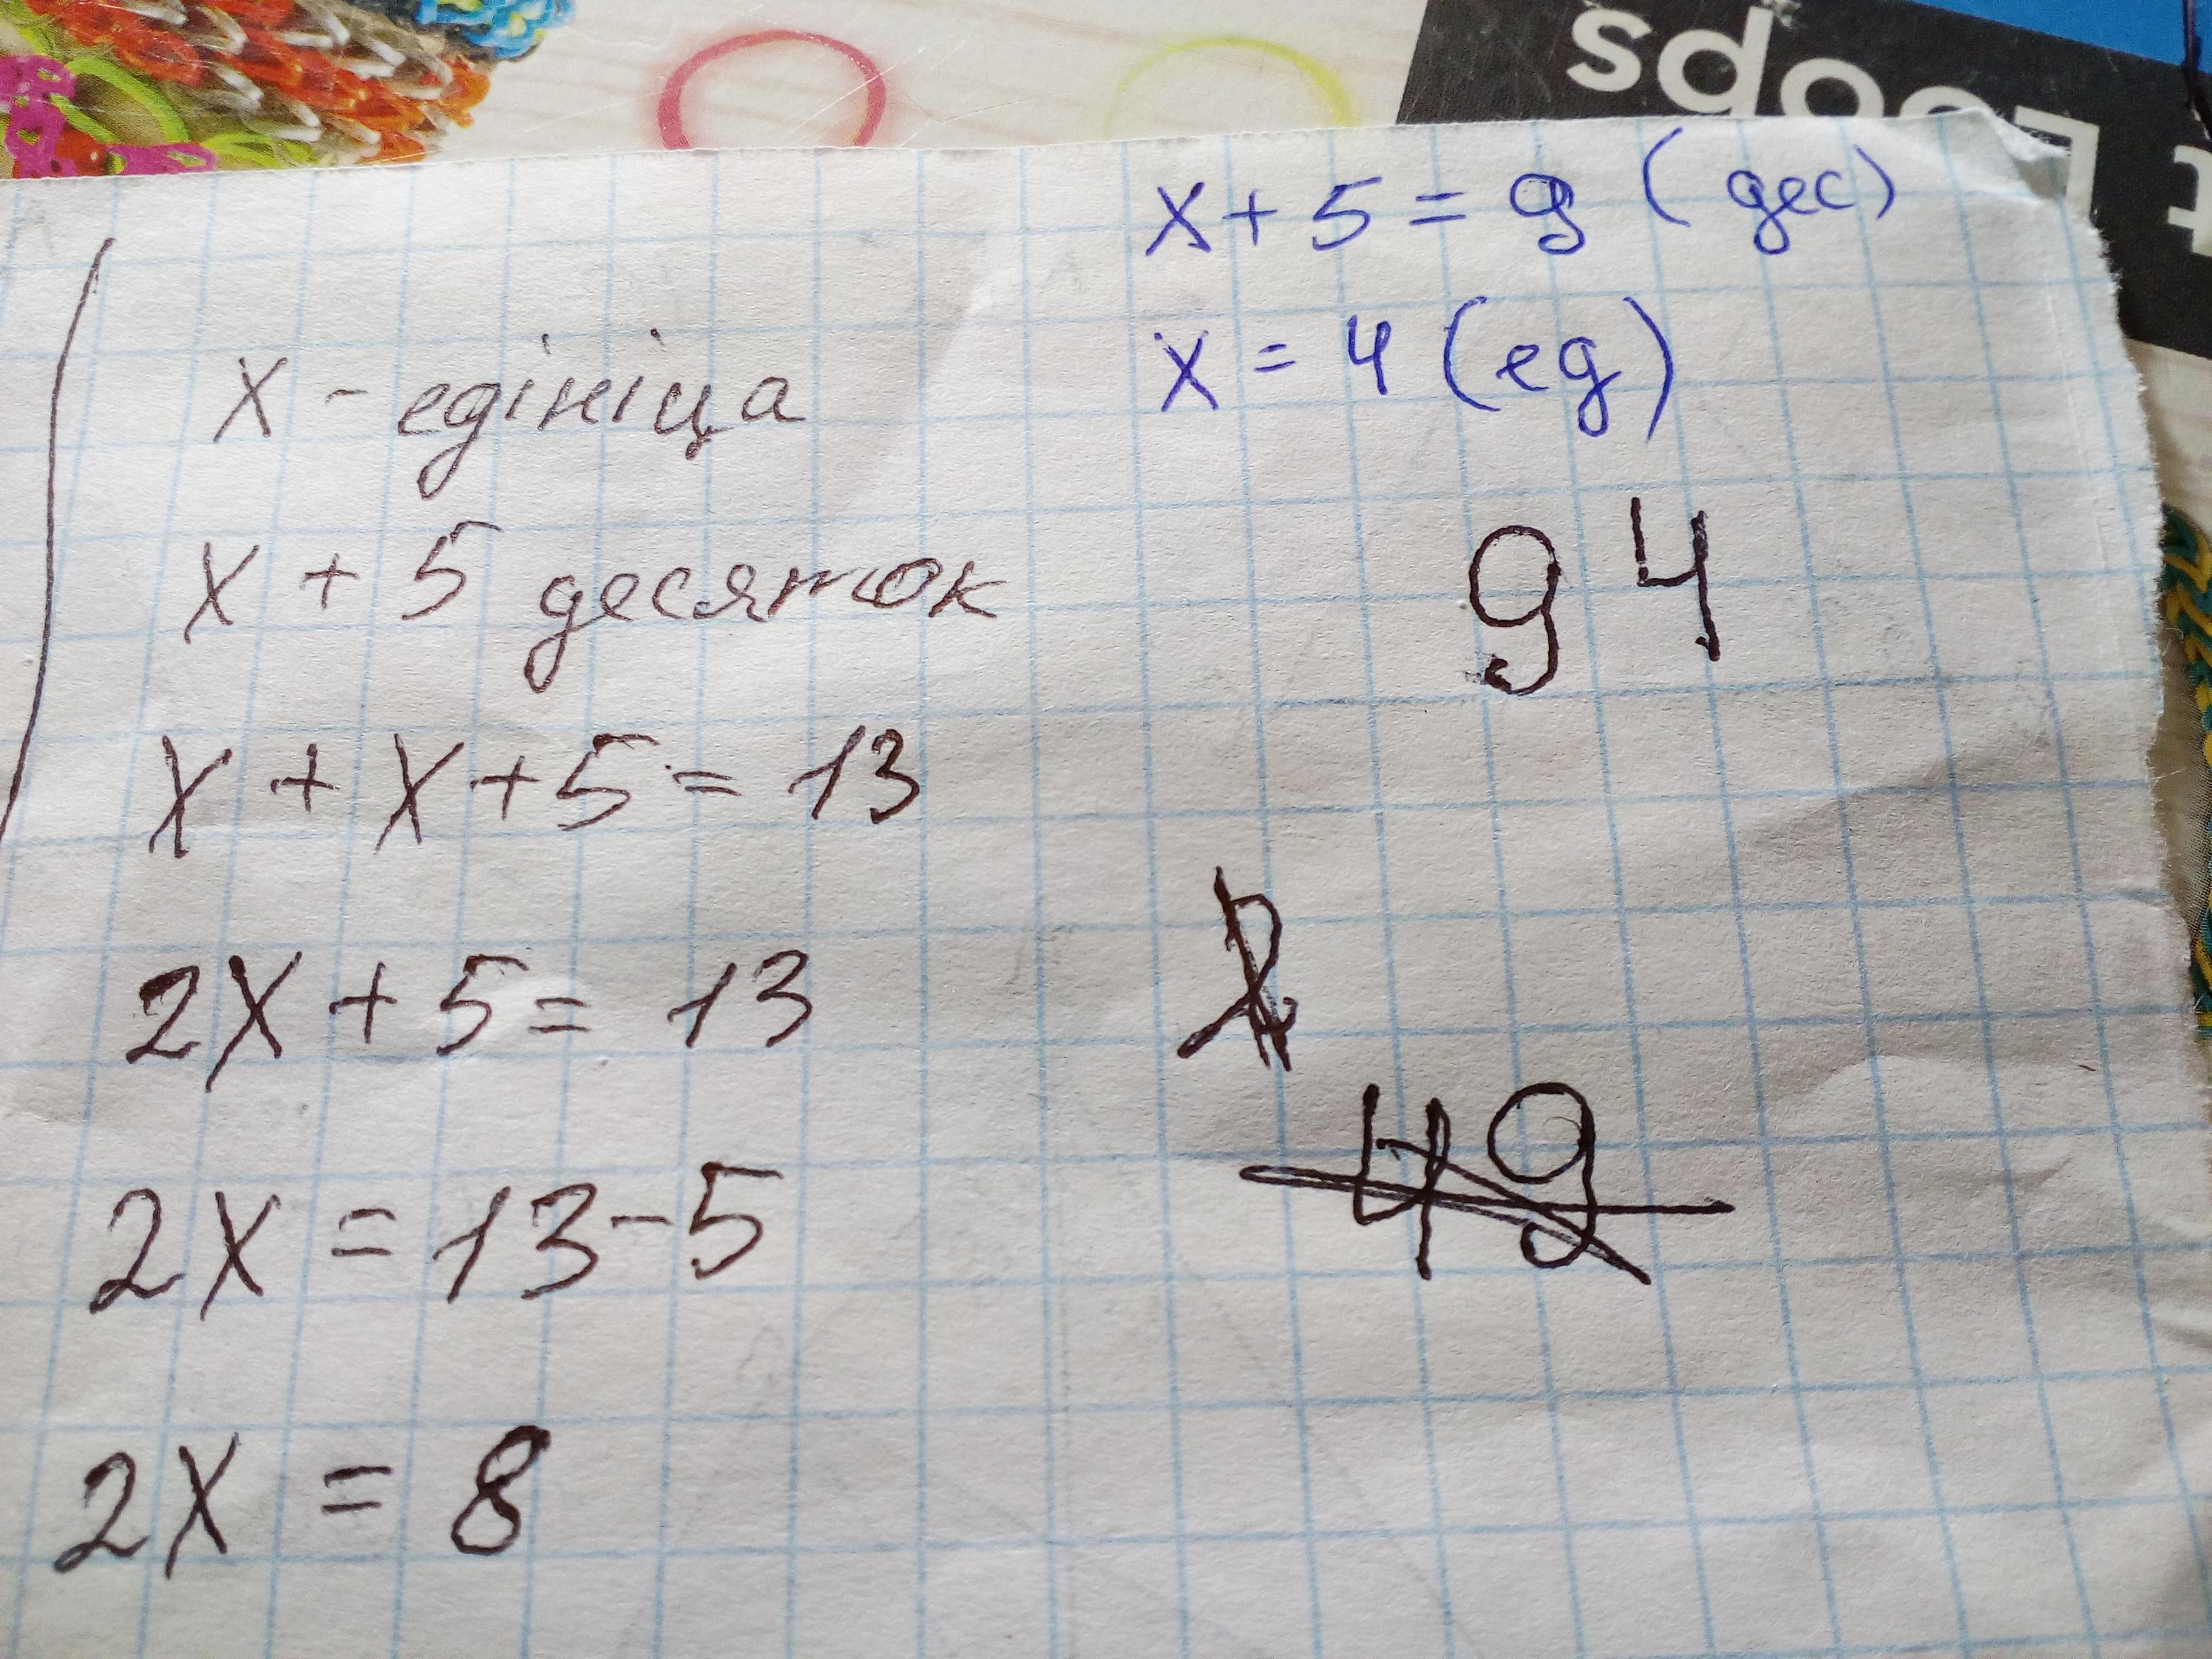 Loops
t
x - едініца
x + 5 десяток
x + x + 5 = 13
2x + 5 = 13
2x = 13 - 5
2x = 8
x + 5 = 9 (дес)
x = 4 (ед)
94
49